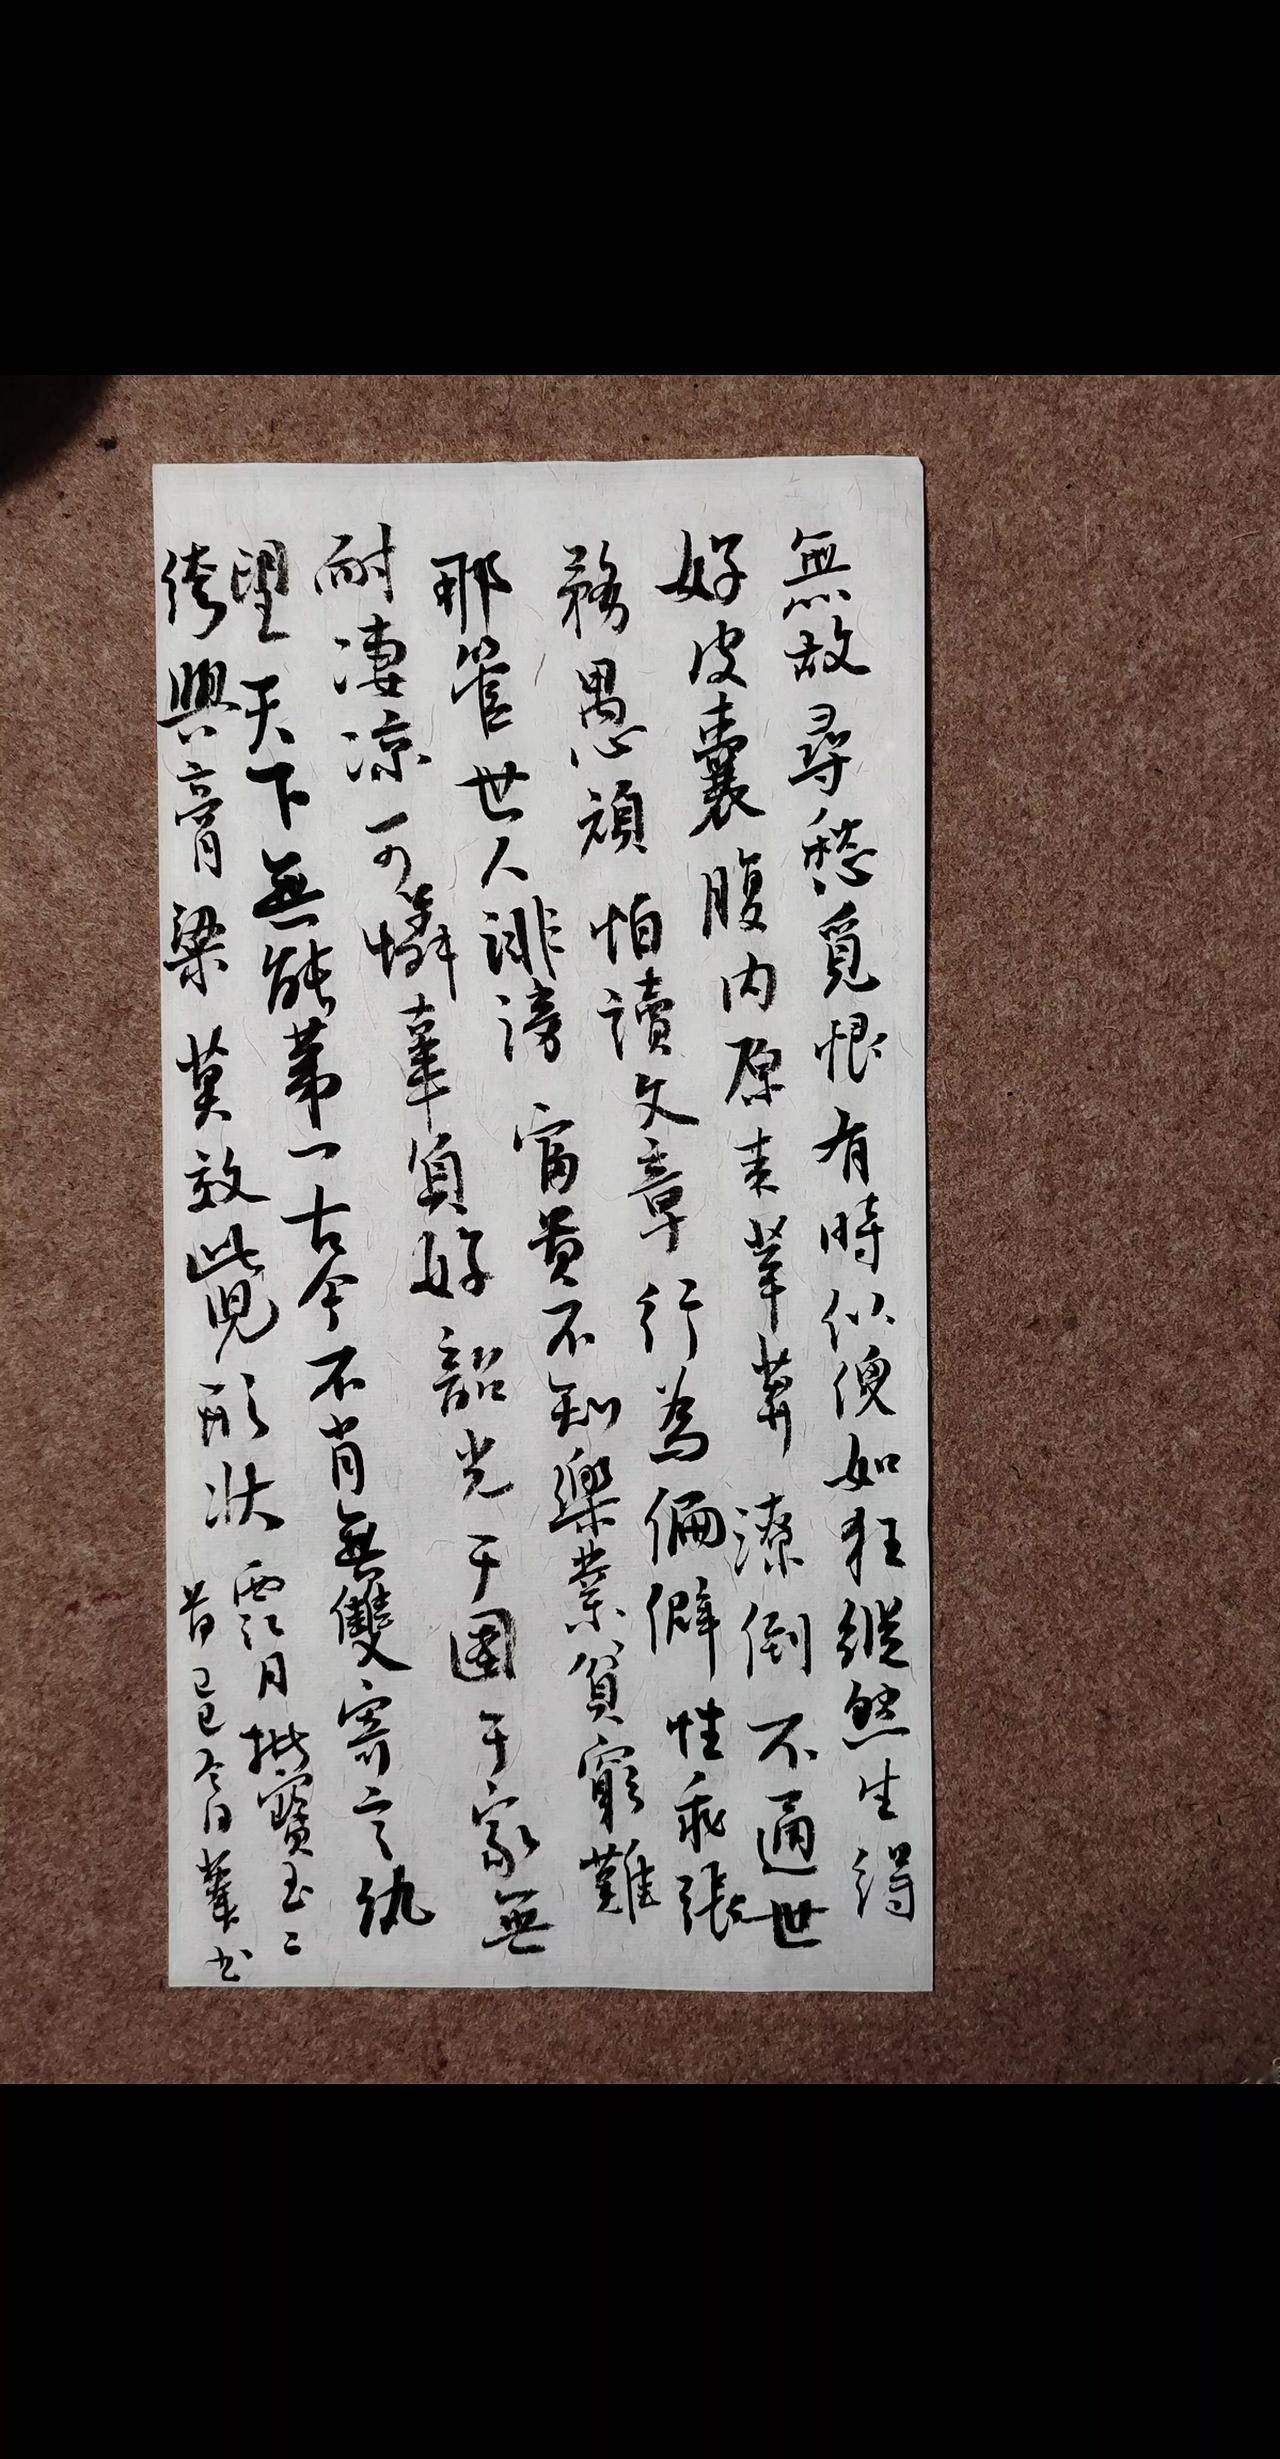 無故尋愁覓恨有時似傻如狂縱然生得
好皮囊腹内原来草莽潦倒不通世
務愚頑怕讀文章行為偏僻性乖張
那管世人誹謗富貴不知樂業貧窮難
耐凄涼可憐辜負好韶光于國于家無
望天下無能第一古今不肖無雙寄言紈
絝與膏粱莫效此兒形狀西江月批寶玉二
首己巳書